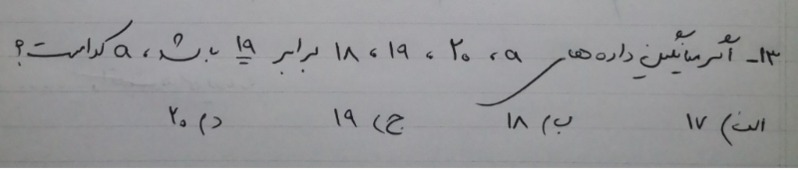 ۱۳- اگر میانگین داده های a ، ۲۰ ، ۱۹ ، ۱۸ برابر ۱۹ باشد، a کدامست؟
الف) ۱۷ ب) ۱۸ ج) ۱۹ د) ۲۰